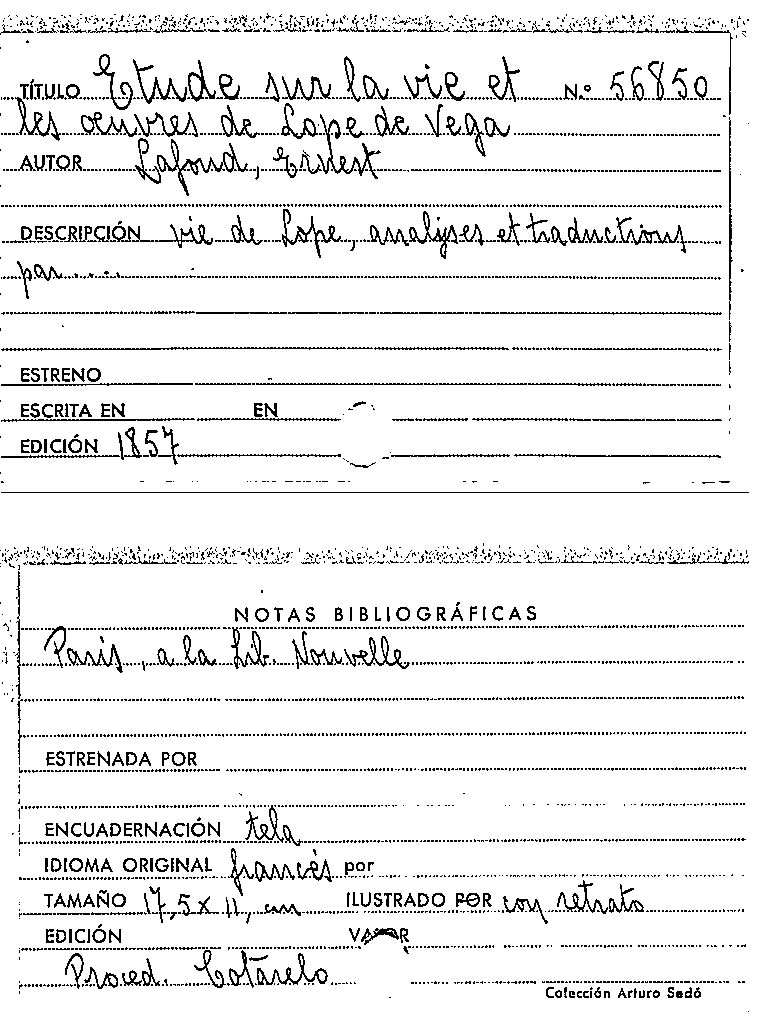 TÍTULO Etude sur la vie et N.º 56850
les œuvres de Lope de Vega
AUTOR Lafond, Ernest
DESCRIPCIÓN vie de Lope, analyses et traductions
par....
ESTRENO
ESCRITA EN EN
EDICIÓN 1857
NOTAS BIBLIOGRÁFICAS
Paris, a la Lib. Nouvelle
ESTRENADA POR
ENCUADERNACIÓN tela
IDIOMA ORIGINAL francés por
TAMAÑO 17,5 x 11, cm ILUSTRADO POR con retrato
EDICIÓN VALOR
Proced. Cotarelo
Colección Arturo Sedó